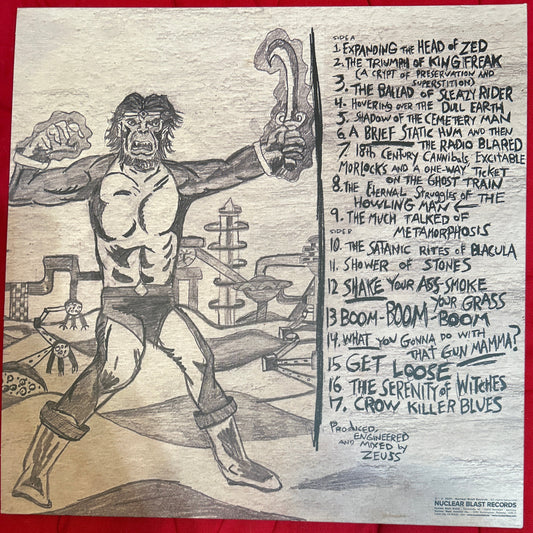 SIDE A
1. EXPANDING THE HEAD OF ZED
2. THE TRIUMPH OF KING FREAK
(A CRYPT OF PRESERVATION AND
SUPERSTITION)
3. THE BALLAD OF SLEAZY RIDER
4. HOVERING OVER THE DULL EARTH
5. SHADOW OF THE CEMETERY MAN
6 A BRIEF STATIC HUM AND THEN
THE RADIO BLARED
7. 18th CENTURY CANNIBALS, EXCITABLE
MORLOCKS AND A ONE-WAY TICKET
ON THE GHOST TRAIN
8. THE ETERNAL STRUGGLES OF THE
HOWLING MAN
9. THE MUCH TALKED OF
METAMORPHOSIS
SIDE B
10. THE SATANIC RITES OF BLACULA
11. SHOWER OF STONES
12 SHAKE YOUR ASS-SMOKE
YOUR GRASS
13 BOOM-BOOM-BOOM
14. WHAT YOU GONNA DO WITH
THAT GUN MAMMA?
15 GET LOOSE
16 THE SERENITY OF WITCHES
17. CROW KILLER BLUES
PRODUCED,
ENGINEERED
AND MIXED BY
ZEUSS
NUCLEAR BLAST RECORDS